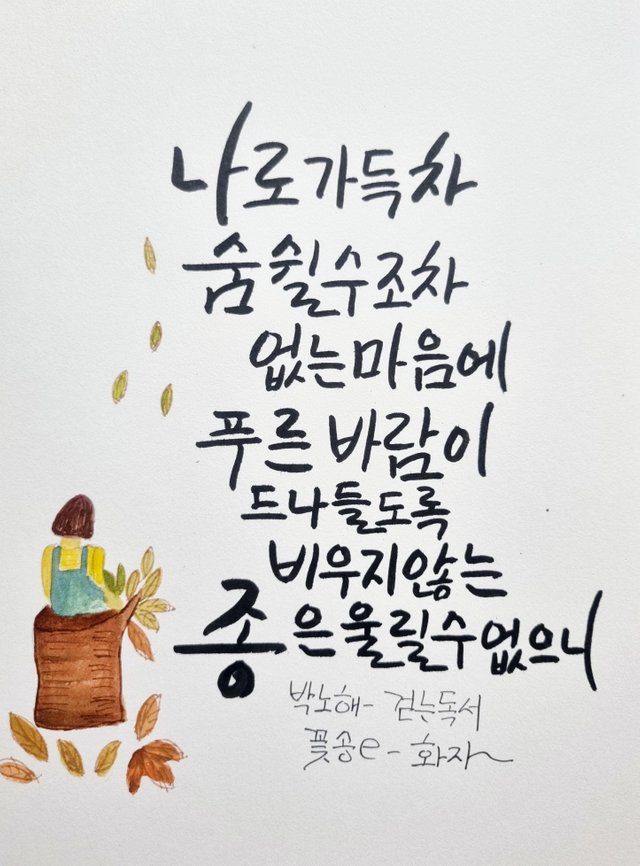 나로 가득 차
숨 쉴 수조차
없는 마음에
푸른 바람이
드나들도록
비우지 않는
종은 울릴 수 없으니
박노해 - 걷는 독서
꽃송e - 화자